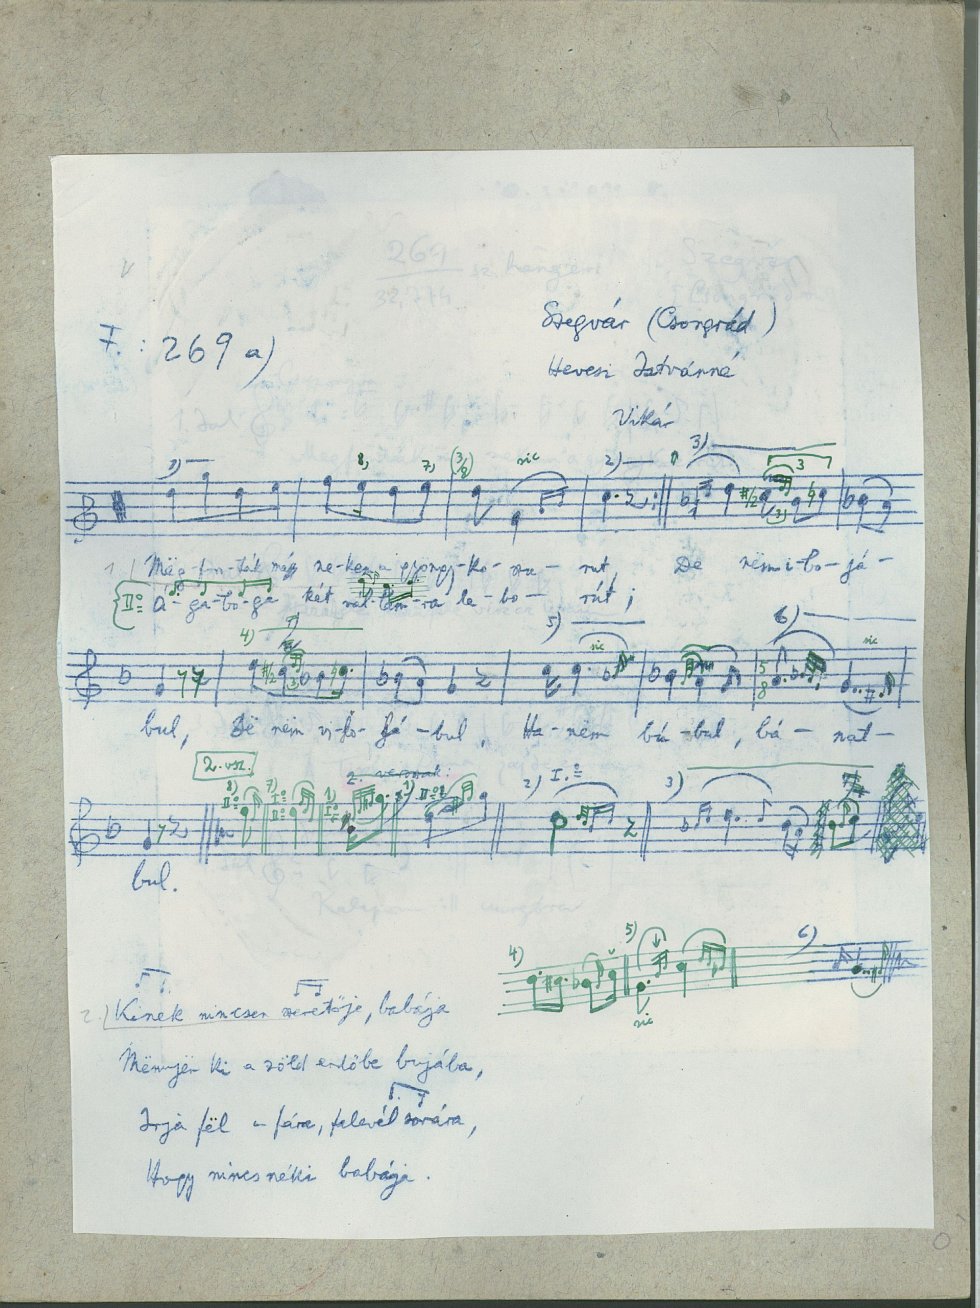 F. : 269 a)
Szegvár (Csongrád)
Hevesi Istvánné
Vikár
1) 8) 7) (3/8) sic 2) 3) 3
1.) Még-fu-ták már ne-kem a gyöngy-ko-szo-rut De nëm i-bo-já-
II° A-ga-bo-ga két vál-lam-ra le-bo-rút;
4) 7) 5) sic 6) sic
bul, De nëm vi-ho-já-bul, Ha-nëm bú-bul, bá-nat-
2. vsz.
2. versnek:
8) II° 7) I° 1) I° 1) II° 2) I.° 3)
bul.
4) 5) sic 6)
2.) Kinek nincsen szeretője, babája
Mënnyën ki a zöld erdőbe bujába,
Irja fël a fára, falevél sorára,
Hogy nincs néki babája.